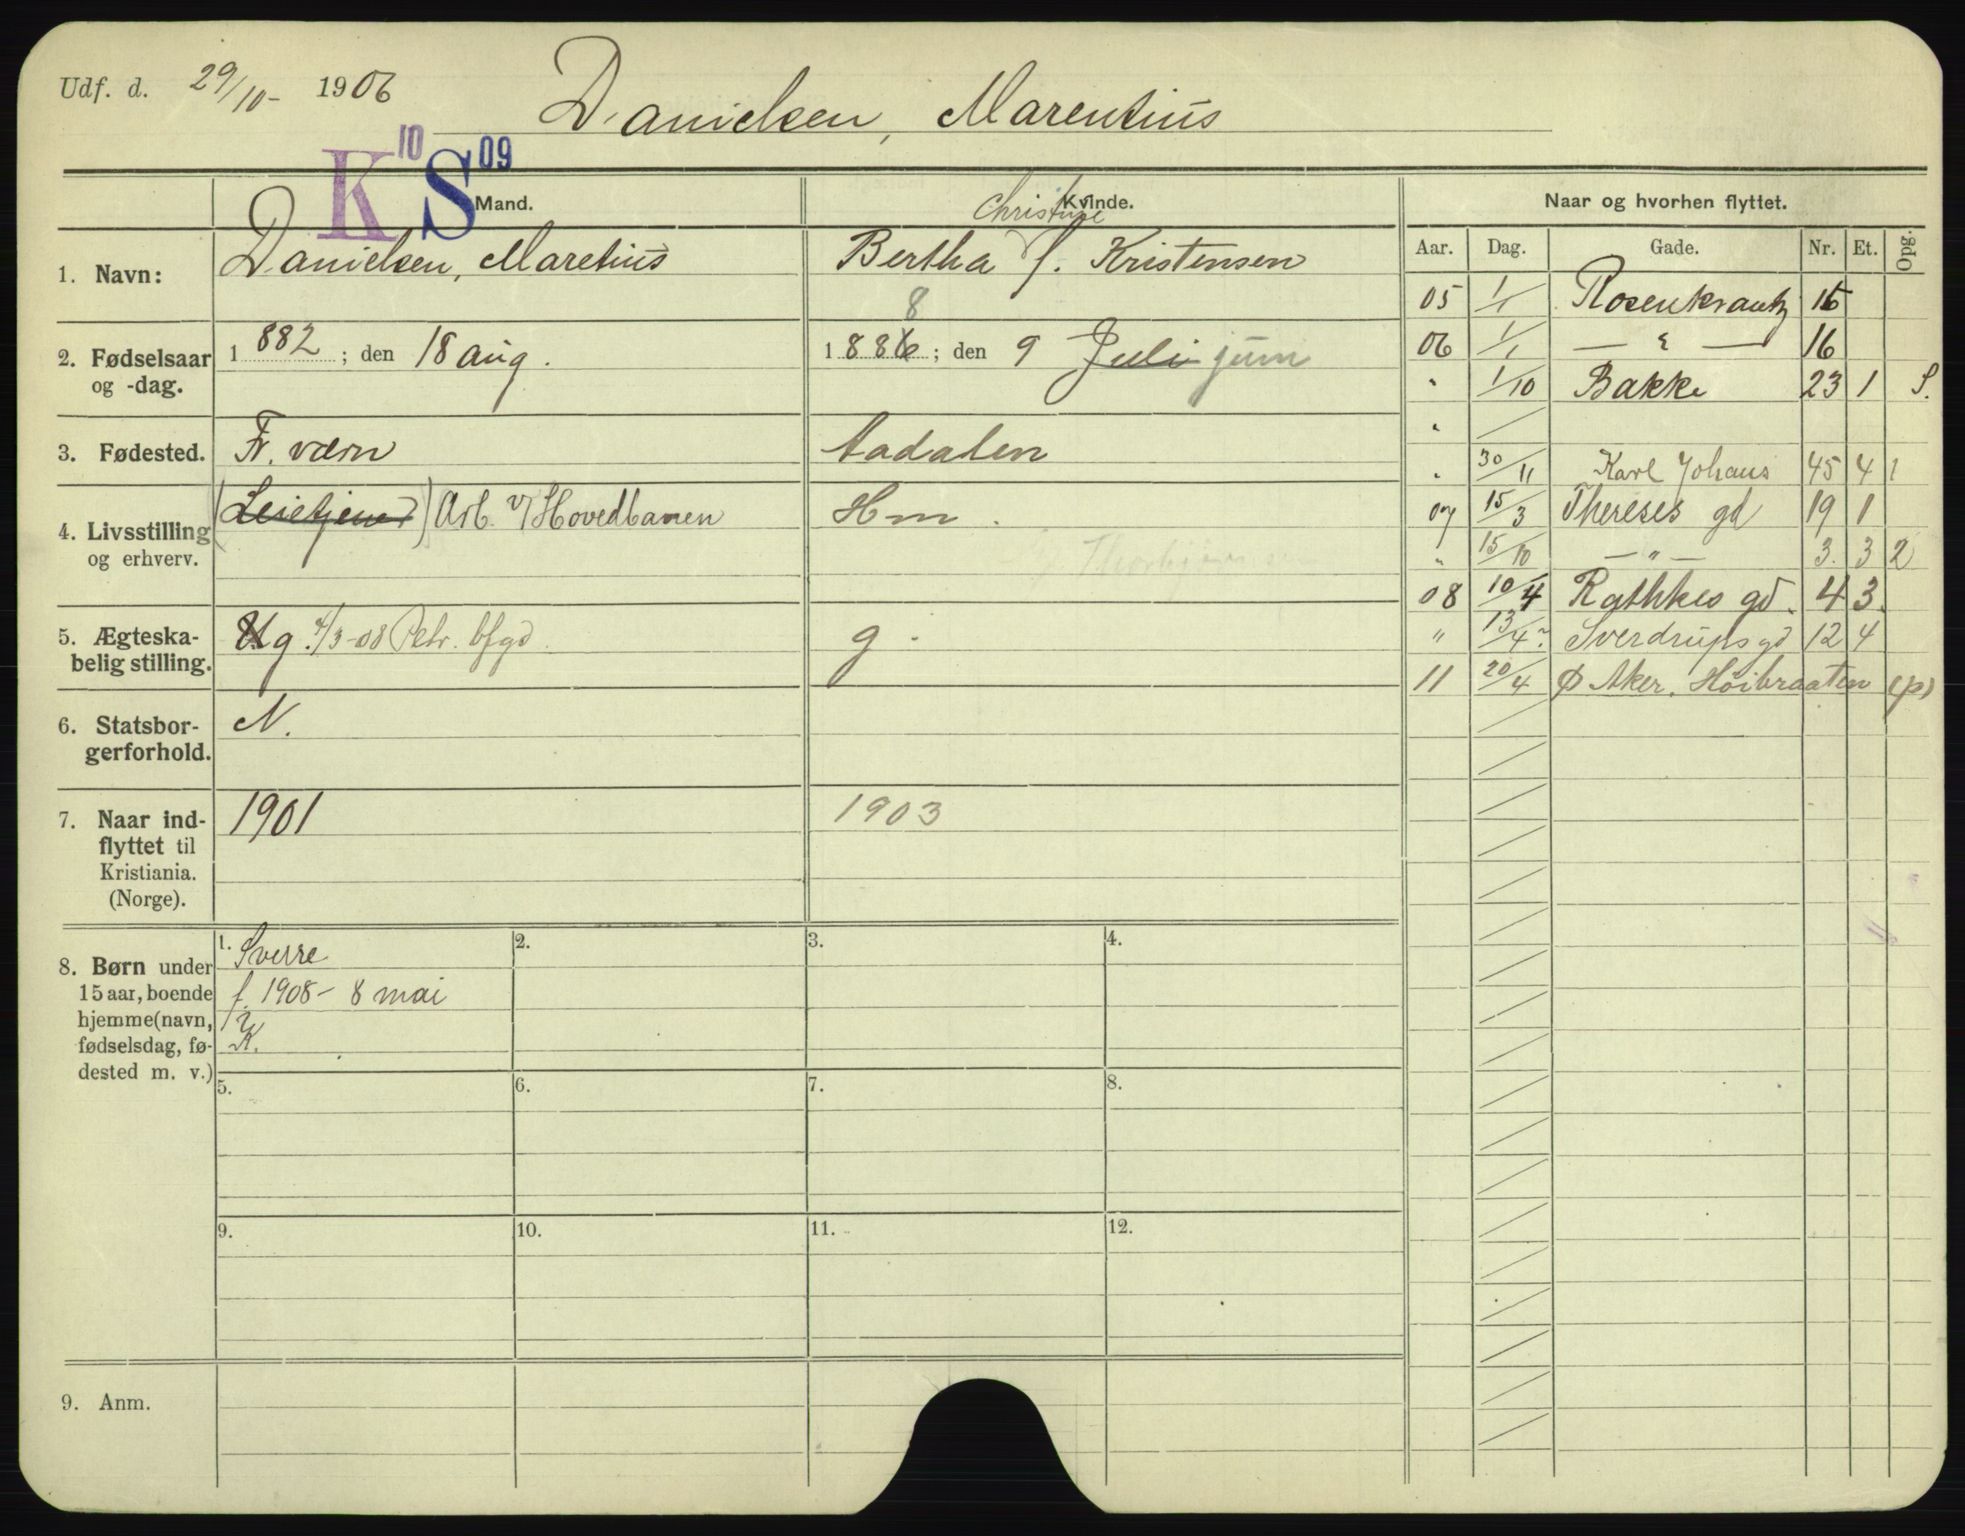 Udf. d. 29/10 - 1906
Danielsen, Marentius
K 10 S 09
Mand.
Kvinde.
Naar og hvorhen flyttet.
Aar. Dag. Gade. Nr. Et. Opg.
1. Navn:
Danielsen, Maretius
Christine
Bertha f. Kristensen
2. Fødselsaar
og -dag.
1882 ; den 18 aug.
8
1886 ; den 9 Juli juni
3. Fødested.
Fr. værn
Aadalen
4. Livsstilling
og erhverv.
(Leietjener) Arb. v/ Hovedbanen
Hm.
5. Ægteska-
belig stilling.
Ug. 4/3-08 Petr. bfgd.
g.
6. Statsbor-
gerforhold.
N.
7. Naar ind-
flyttet til
Kristiania.
(Norge).
1901
1903
05 1/1 Rosenkrantz 15
06 1/1 — " — 16
" 1/10 Bakke 23 1 S.
"
" 30/11 Karl Johans 45 4 1
07 15/3 Thereses gd 19 1
" 15/10 — " — 3. 3 2
08 10/4 Rathkes gd. 4 3.
" 13/4 Sverdrups gd 12 4
11 20/4 Ø Aker. Höibraaten (p)
8. Børn under
15 aar, boende
hjemme (navn,
fødselsdag, fø-
dested m. v.)
1. Sverre
f. 1908 - 8 mai
K.
2.
3.
4.
5.
6.
7.
8.
9.
10.
11.
12.
9. Anm.